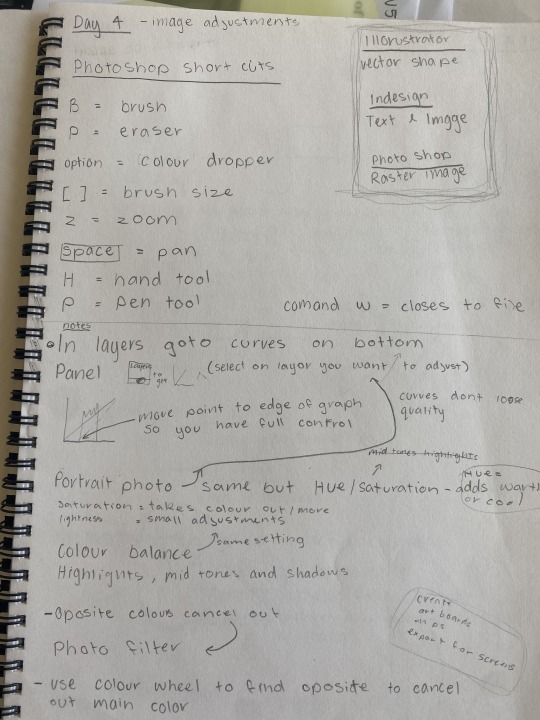 Day 4 - image adjustments
Photoshop short cuts
B = brush
P = eraser
option = colour dropper
[ ] = brush size
Z = zoom
Space = pan
H = hand tool
P = pen tool
Illorustrator
vector shape
Indesign
Text & Image
Photo shop
Raster image
comand w = closes to file
notes
In layers goto curves on bottom
Panel
Layers
(select on layor you want to adjust)
move point to edge of graph
so you have full control
curves dont loose
quality
mid tones hightlights
Portrait photo same but Hue/saturation - adds
Hue=
or cool
saturation = takes colour out/more
lightness = small adjustments
Colour balance same setting
Highlights, mid tones and shadows
- Oposite colous cancel out
Photo filter
- use colour wheel to find oposite to cancel
out main color
create
art boards
in ps
export for screens